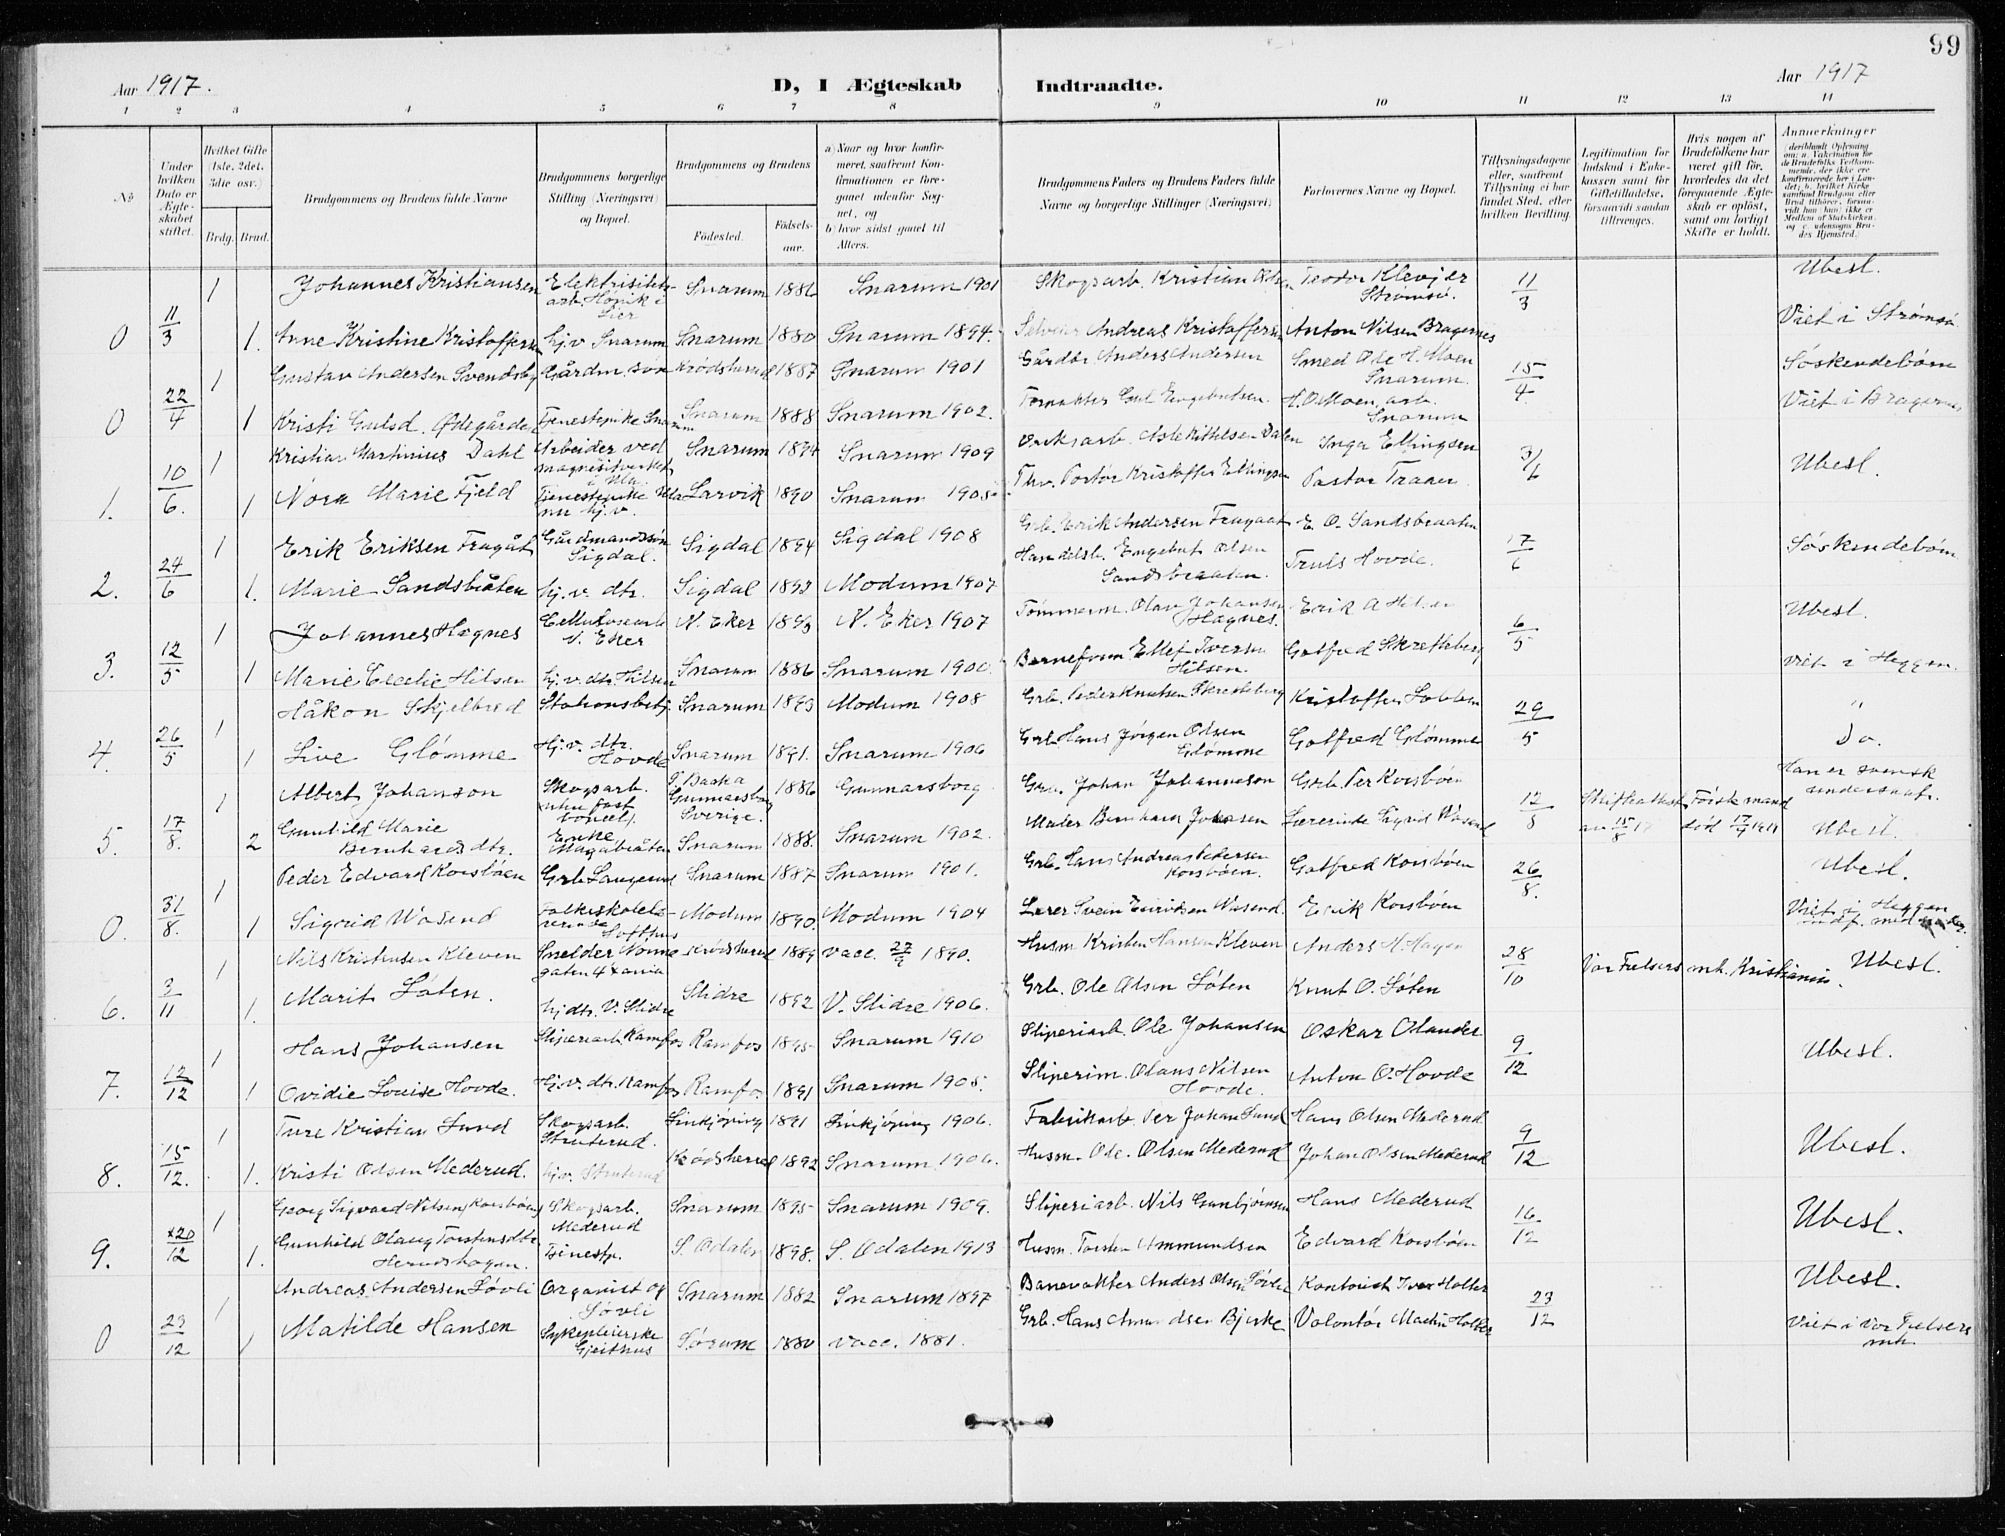 99
Aar 1917.
D, I Ægteskab Indtraadte.
Aar 1917
1 2 3 4 5 6 7 8 9 10 11 12 13 14
No
Under hvilken Dato er Ægteskabet stiftet.
Hvilket Gifte (1ste, 2det, 3die osv.)
Brdg. Brud.
Brudgommens og Brudens fulde Navne
Brudgommens borgerlige Stilling (Næringsvei) og Bopæl.
Brudgommens og Brudens
Fødested.
Fødselsaar.
a) Naar og hvor konfirmeret, saafremt Konfirmationen er foregaaet udenfor Sognet, og
b) hvor sidst gaaet til Alters.
Brudgommens Faders og Brudens Faders fulde Navne og borgerlige Stillinger (Næringsvei)
Forlovernes Navne og Bopæl.
Tillysningsdagene eller, saafremt Tillysning ei har fundet Sted, efter hvilken Bevilling.
Legitimation for Indskud i Enkekassen samt for Giftetilladelse, forsaavidt saadan tiltrænges.
Hvis nogen af Brudefolkene har været gift før, hvorledes da det foregaaende Ægteskab er opløst, samt om lovligt Skifte er holdt.
Anmerkninger
1 Johannes Kristiansen Elektrisitets- arb. Hønik i Lier Snarum 1886 Snarum 1901 Skogsarb. Kristian Olsen Teodor Klevjer Strømsø. 11/3 Ubesl.
0 11/3 1. Anne Kristine Kristoffersen hj.v. Snarum Snarum 1880 Snarum 1894. Andreas Kristoffersen Anton Nilsen Bragernes Viet i Strømsø
1 Gustav Andersen Svendsby Gårdm. søn Krødsherred 1887 Snarum 1901 Gårdbr Anders Andersen Smed Ole H. Moen Snarum. 15/4 Søskendebørn
0 22/4 1 Kristi Gulsd. Ødegården Tjenestepike Snarum Snarum 1888 Snarum 1902. Engebretsen H. O. Moen, arb. Snarum Viet i Bragernes
1 Kristian Martinius Dahl Arbeider ved magnesitverket Snarum 1894 Snarum 1909 Dalen Inga Ellingsen 3/6 Ubesl.
1. 10/6. 1 Nora Marie Fjeld Tjenestepike nu hj.v. Larvik 1890 Snarum 1905 Kristoffer Ellingsen Pastor Traaer
1 Erik Eriksen Fragåt Gårdmandssøn Sigdal. Sigdal 1894 Sigdal 1908 Grb. Erik Andersen Fragaat E. O. Sandsbraaten 17/6 Søskendebørn
2. 24/6 1. Marie Sandsbråten hj.v. dtr. Sigdal 1893 Modum 1907 Handelsb. Engebret Olsen Sandsbraaten. Truls Hovde.
1 Johannes Hagnes Cellulosearb N. Eker N. Eker 1893 N. Eker 1907 Tømmerm. Olav Johansen Hagnes. Erik A Hilsen 6/5 Ubesl.
3. 12/5 1 Marie Cecilie Hilsen hj.v. dtr. Hilsen Snarum 1886 Snarum 1900 Ellef Iversen Hilsen. Gotfred Skretteberg Viet i Heggen
1 Håkon Skjelbred Stationsbetj. Snarum 1893 Modum 1908 Grb. Peder Knutsen Skretteberg Kristoffer Lobben 29/5 "
4. 26/5 1 Live Glømme Hj.v. dtr. Hovde Snarum 1891. Snarum 1906 Grb. Hans Jørgen Olsen Glømme Gotfred Glømme Do.
1 Albert Johanson Skogsarb. uten fast bopæl Gunnarsborg Sverige. 1886 Gunnarsborg Johan Johanneson Grb. Per Korsbøen 12/8 Skifteattest av 15/8 17 Første mand død Han er svensk undersaat.
5. 17/8. 2 Gunhild Marie Bernhardsdtr. Enke Snarum 1888. Snarum 1902 Maler Bernhard Johnsen Lærerinde Sigrid Wasend Ubesl.
1 Peder Edvard Korsbøen Grb. Langerud Snarum 1887 Snarum 1901. Grb. Hans Andreas Pedersen Korsbøen. Gotfred Korsbøen 26/8. Ubesl.
0. 31/8. 1 Sigrid Wasend Folkeskolelærerinde Softhus Modum 1890. Modum 1904 Lærer Svein Wasend. Erik Korsbøen Viet i Heggen
1 Nils Kristensen Kleven Krødsherred 1889 vacc. 27/9 1890. Husm Kristen Hansen Kleven Anders H. Hagen 28/10 Vor Frelsers mh. Kristiania. Ubesl.
6. 3/11 1. Marit Løten. hj.dtr. V. Slidre Slidre 1892 V. Slidre 1906. Grb. Ole Olsen Løten Knut O. Løten
1 Hans Johansen Sliperiarb. Ramfos Ramfos 1895 Snarum 1910 Sliperiarb. Ole Johansen Oskar Olander 9/12 Ubesl.
7. 12/12 1 Ovidie Louise Hovde. Hj.v. dtr. Ramfos Ramfos 1891 Snarum 1905. Sliperim. Olaus Nilsen Hovde. Anton O. Hovde
1 Ture Kristian Lund Skogsarb. Struterud. Linkjøping 1891 Linkjøping 1906. Fabrikarb. Per Johan Lund Hans Olsen Mederud 9/12 Ubesl.
8. 15/12. 1. Kristi Olsen Mederud. hj.v. Struterud Krødsherred 1892 Snarum 1906. Husm. Ole Olsen Mederud Johan Olsen Mederud
1 Georg Sigvard Nilsen Korsbøen Skogsarb. Mederud Snarum 1895 Snarum 1909. Sliperiarb. Nils Gunbjørnsen Hans Mederud 16/12 Ubesl.
9. 20/12 1. Gunhild Olaug Torstensdtr. Tjenestp. S. Odalen 1898. S. Odalen 1913 Husm. Torsten Ammundsen Edvard Korsbøen
1 Andreas Andersen Løvli Organist og Løvli Snarum 1882 Snarum 1897 Banevokter Anders Olsen Løvli Kontorist Iver Holter 23/12 Ubesl.
0 23/12 1 Matilde Hansen Sykepleierske Gjeithus Sørum 1880 vacc. 1881. Grb. Hans Bjerke Volontør Martin Holter Viet i Vor Frelsers mh.